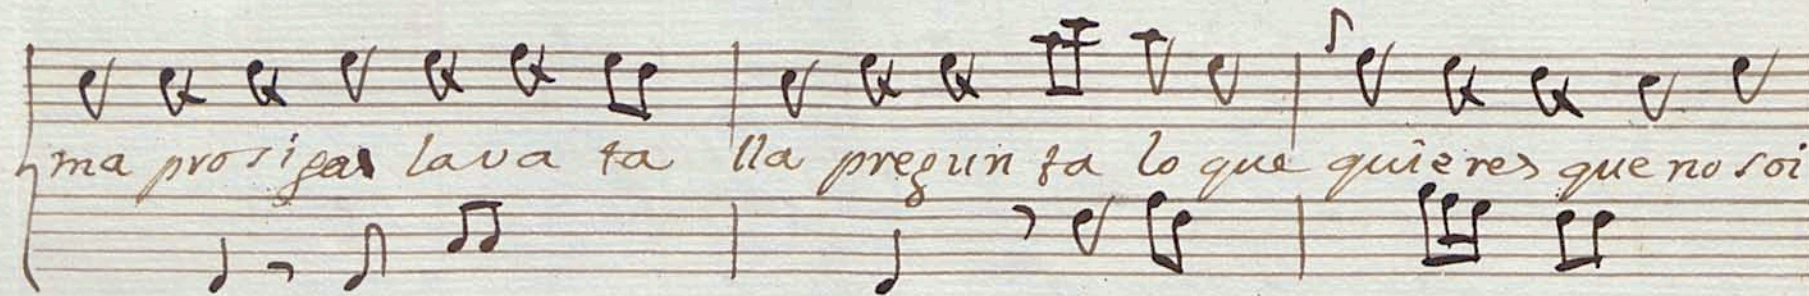 ma prosigas lava ta lla pregun ta lo que quieres que no soi